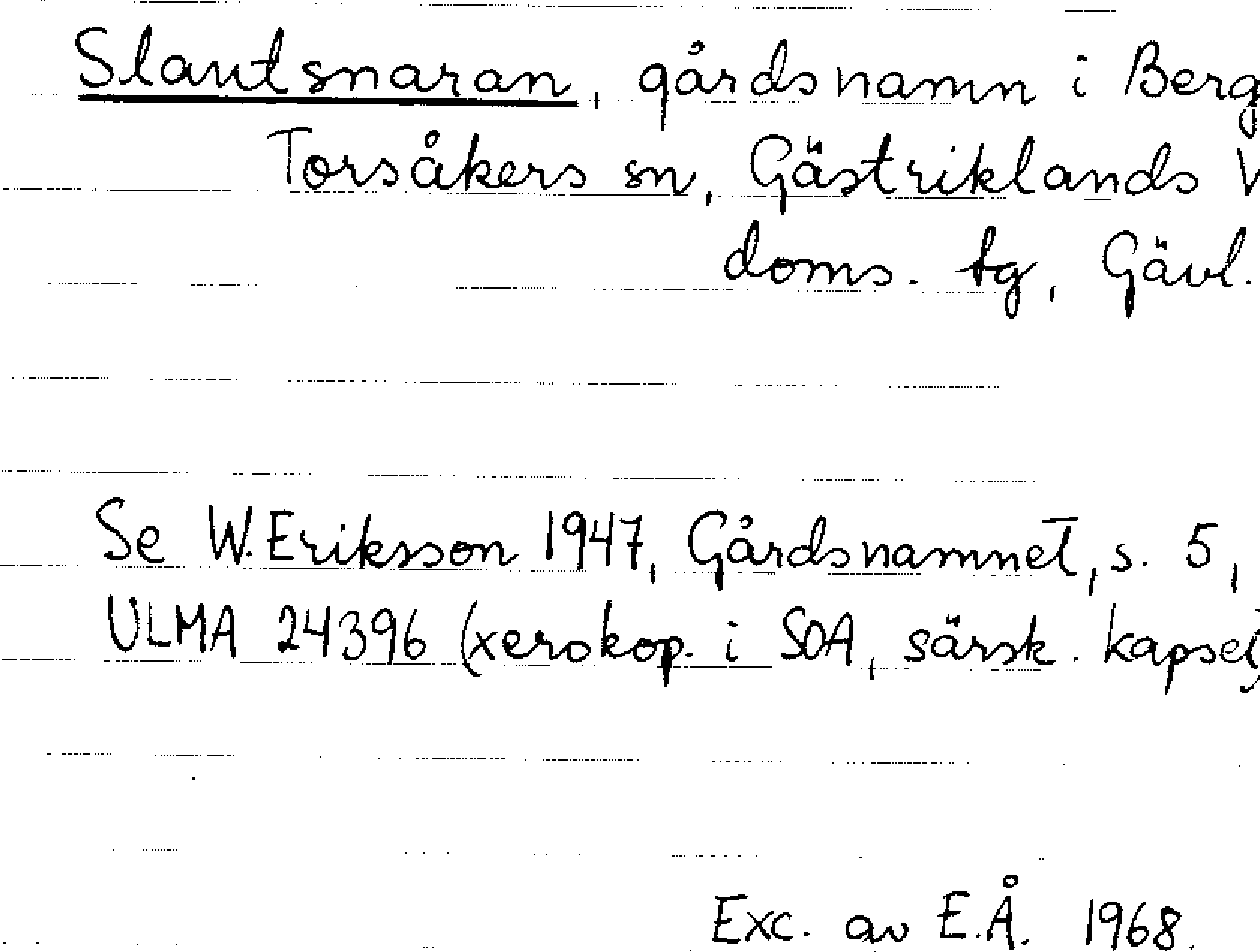 Slantsnaran, gårdsnamn i Berg
Torsåkers sn, Gästriklands V
doms. tg, Gävl.
Se W. Eriksson 1947, Gårdsnamnet, s. 5,
ULMA 24396 (xerokop. i SOA, särsk. kapsel)
Exc. av E.Å. 1968.